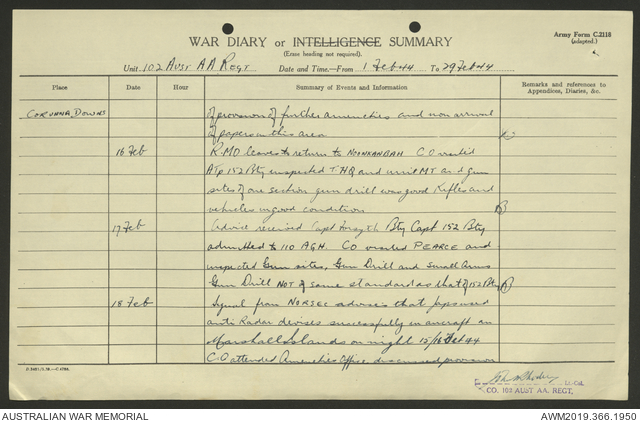 Army Form C.2118
(adapted.)
WAR DIARY or INTELLIGENCE SUMMARY
(Erase heading not required).
Unit 102 AUST AA REGT Date and Time.—From 1 Feb 44 To 29 Feb 44
Place Date Hour Summary of Events and Information Remarks and references to Appendices, Diaries, &c.
CORUNNA DOWNS of provision of further amenities and non arrival
of papers in this area
16 Feb R.M.O leaves to return to NOONKANBAH CO visited
A Tp 152 Bty inspected THQ and unit MT and gun
sites of one section gun drill was good Rifles and
vehicles in good condition
17 Feb Advice received Capt Forsyth Bty Capt 152 Bty
admitted to 110 AGH. CO visited PEARCE and
inspected Gun sites, Gun Drill and Small Arms
Gun Drill NOT of same standard as that of 152 Bty
18 Feb Signal from NORSEC advises that Japs used
anti Radar devises successfully in aircraft on
Marshall Islands on night 15/16 Feb 44
C.O attended Amenities Office discussed provision
Lt-Col.
CO. 102 AUST AA. REGT.
AUSTRALIAN WAR MEMORIAL
AWM2019.366.1950